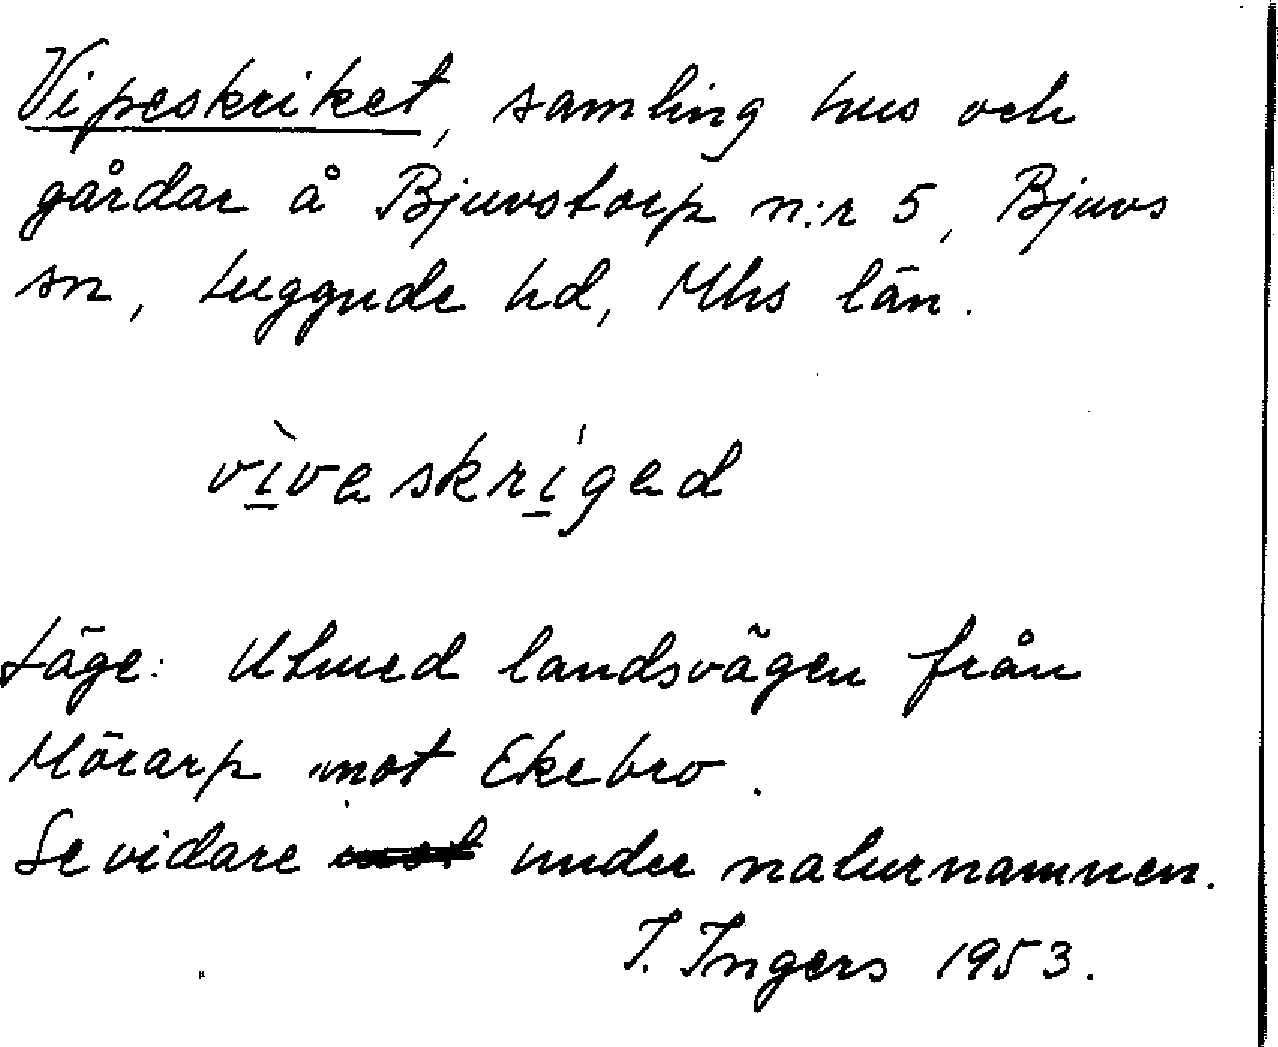 Vipeskriket, samling hus och
gårdar å Bjuvstorp n:r 5, Bjuvs
sn, Luggude hd, Mhs län.
vìveskríged
Läge: Utmed landsvägen från
Mörarp mot Ekebro.
Se vidare under naturnamnen.
I. Ingers 1953.